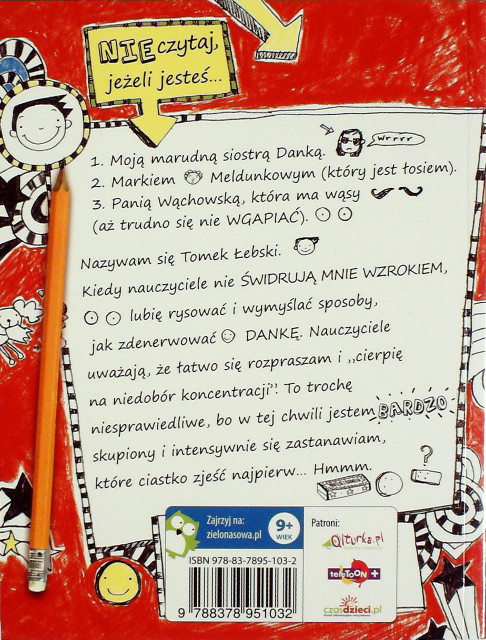 NIE czytaj,
jeżeli jesteś...
1. Moją marudną siostrą Danką.
Wrrrr
2. Markiem Meldunkowym (który jest łosiem).
3. Panią Wąchowską, która ma wąsy
(aż trudno się nie WGAPIAĆ).
Nazywam się Tomek Łebski.
Kiedy nauczyciele nie ŚWIDRUJĄ MNIE WZROKIEM,
lubię rysować i wymyślać sposoby,
jak zdenerwować DANKĘ. Nauczyciele
uważają, że łatwo się rozpraszam i „cierpię
na niedobór koncentracji”! To trochę
niesprawiedliwe, bo w tej chwili jestem BARDZO
skupiony i intensywnie się zastanawiam,
które ciastko zjeść najpierw... Hmmm.
?
Zajrzyj na:
zielonasowa.pl
9+
WIEK
Patroni:
Qlturka.pl
teleTOON+
czasdzieci.pl
ISBN 978-83-7895-103-2
9 788378 951032